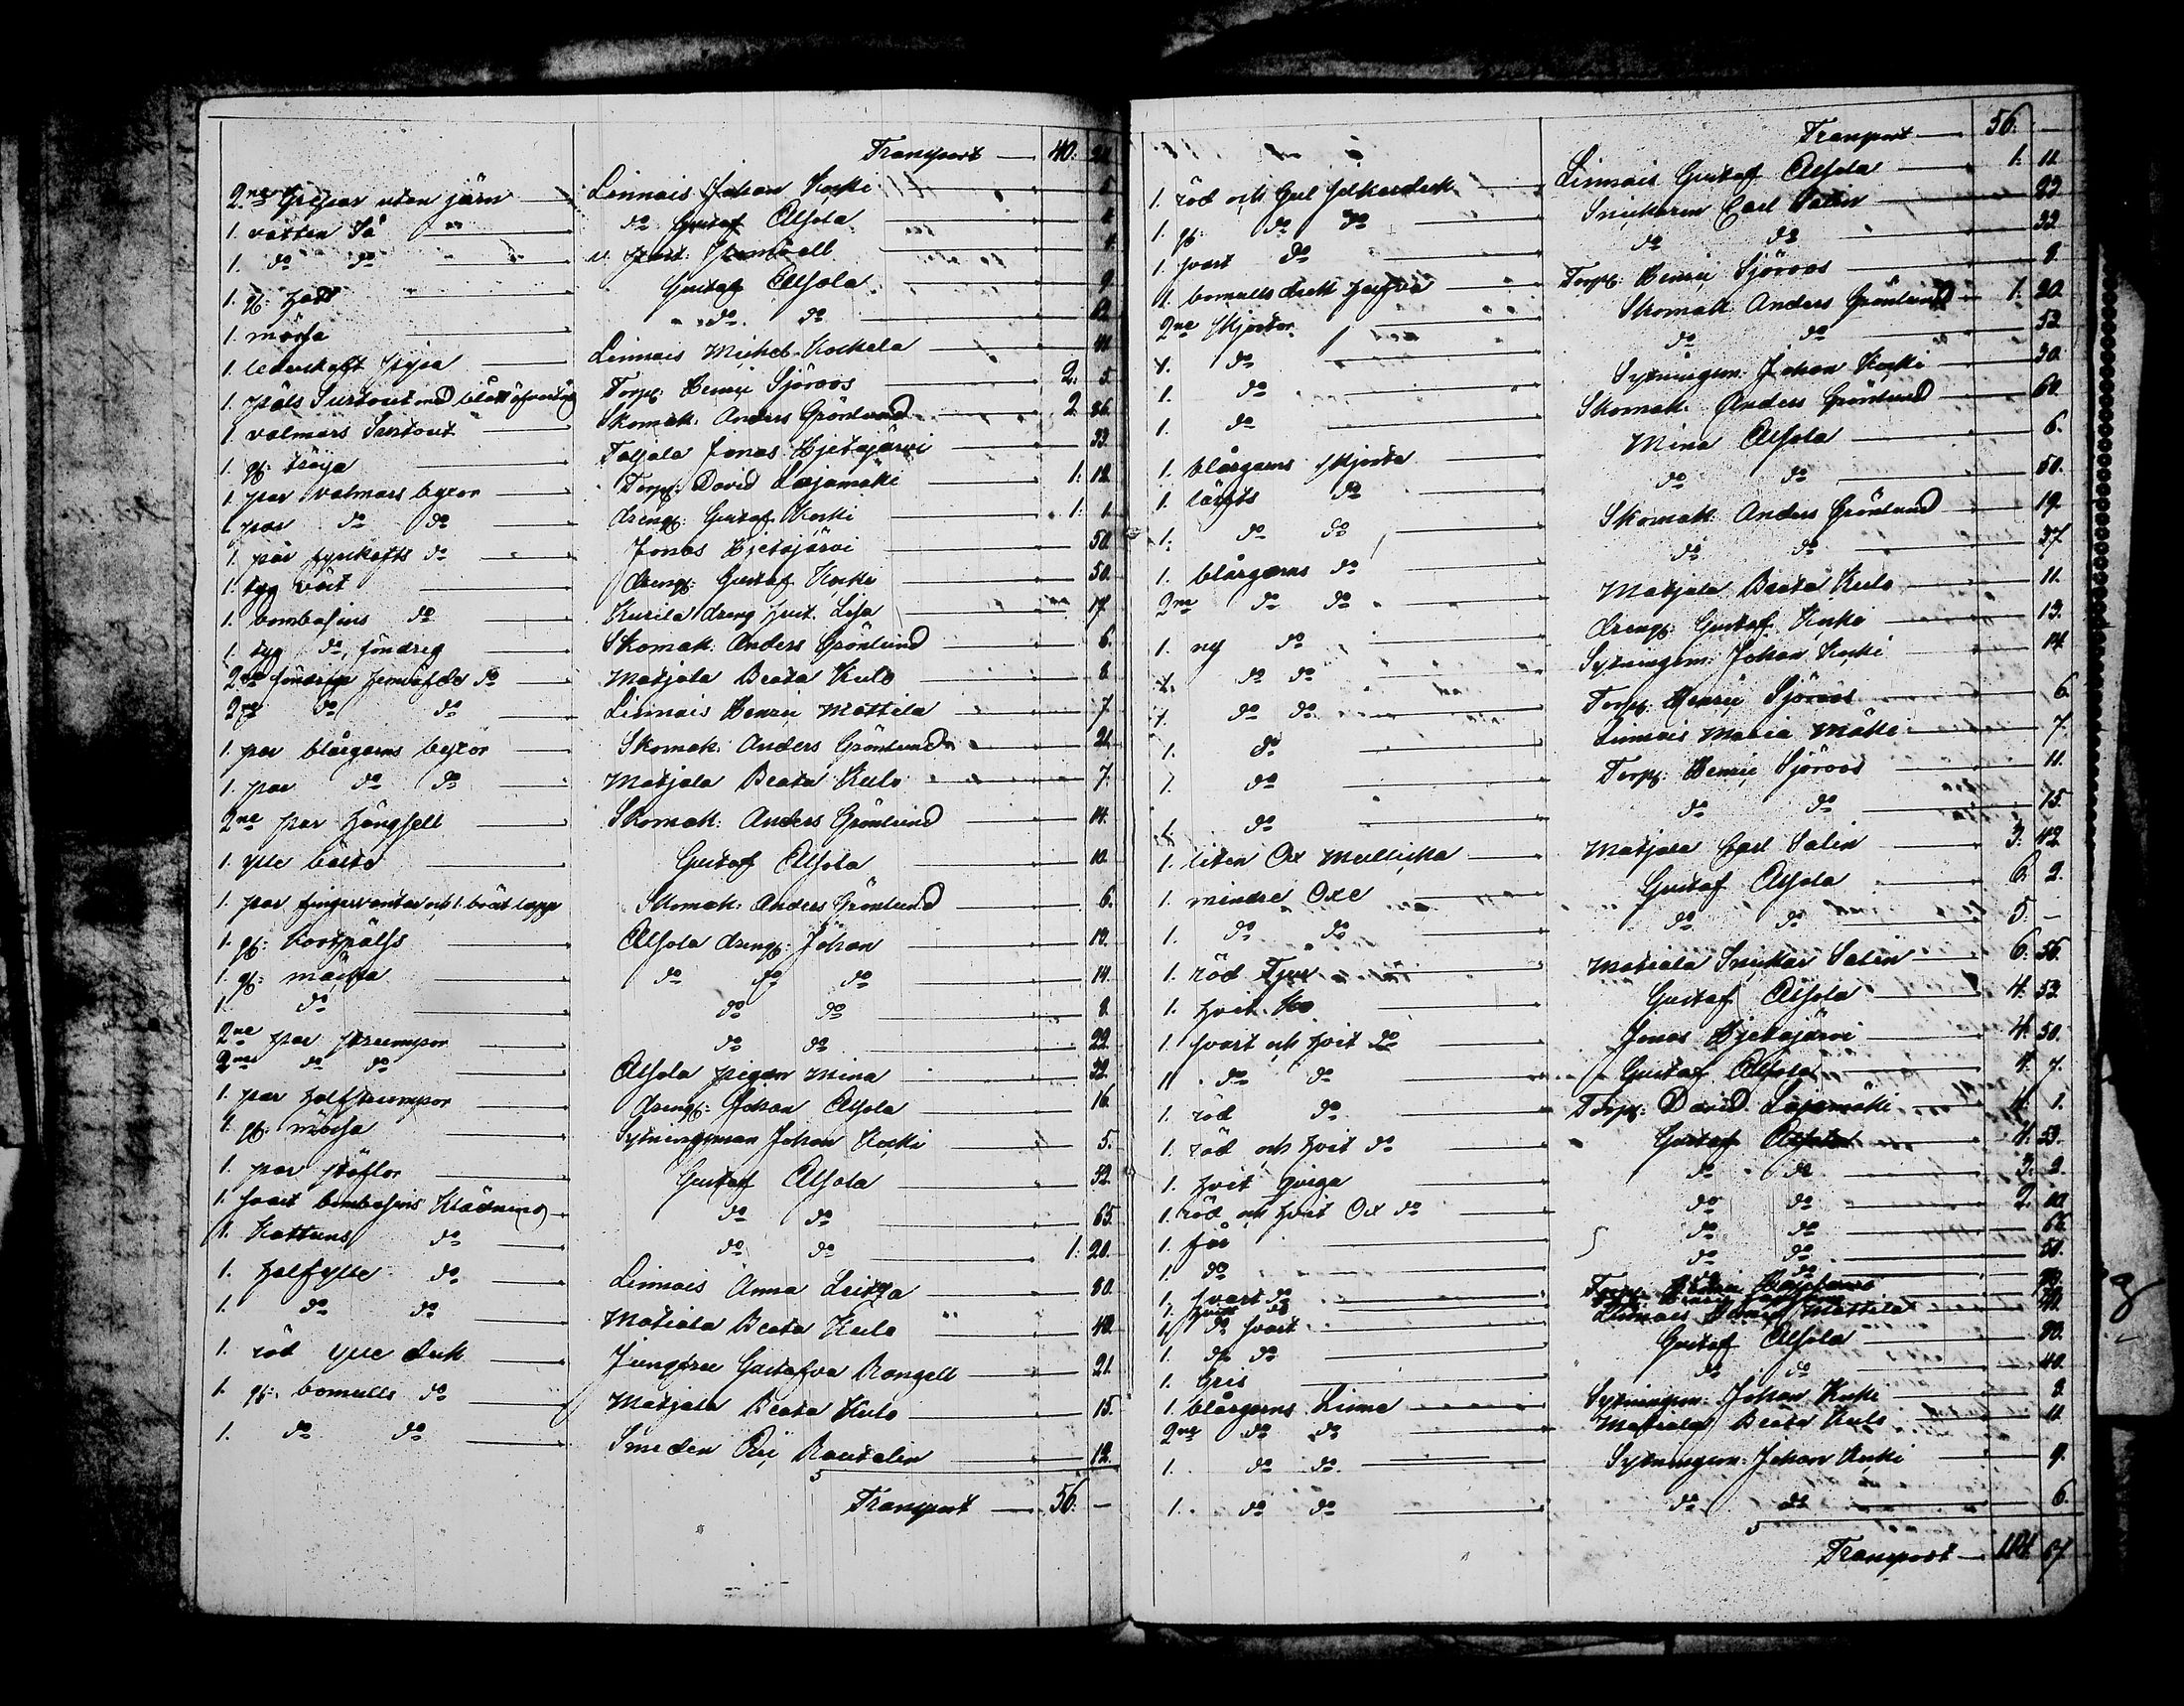 Transport — 40.
2ne Grepar utan järn — Linnais Johan Koski
1. vatten Så — do Gustaf Alsola
1. do do
1. gl: hatt — Gustaf Alsola — 9.
1. mössa — do do
1. Linnais Michel Kockela
1. päls Surtout med blått — Torp: Henric Sjöroos — 2. 5.
1. valmars Surtout — Skomak: Anders Grönlund — 2. 86.
1. gl: tröya — Jonas Hjetajärvi — 33.
1. par valmars byxor — Torp: David Lajamäki — 1. 12.
1. par do do — dreng: Gustaf Koski — 1. 1.
1. par do — Jonas Hjetajärvi — 50.
1. tyg väst — dreng: Gustaf Koski — 50.
1. bombasins do — Kurila dreng Lisa — 17.
1. tyg do, söndrig — Skomak: Anders Grönlund — 6.
2ne söndriga do — Matjala Beata Kulo — 8.
2ne do do — Linnais Henric Mattila — 7.
1. par blårgarns byxor — Skomak: Anders Grönlund — 21.
1. par do do — Matjala Beata Kulo — 7.
2ne par Hängsell — Skomak: Anders Grönlund — 14.
1. ylle bälte — Gustaf Alsola — 10.
1. par fingervantar och 1. lapp — Skomak: Anders Grönlund — 6.
1. gl: — Alsola dreng: Johan — 19.
1. gl: mössa — do do do — 14.
1. do — do do — 8.
2ne par strumpor — do do — 22.
2ne do do — Alsola pigan Mina — 32.
1. par halfstrumpor — dreng: Johan Alsola — 16.
1. gl: mössa — Sytningsman Johan Koski — 5.
1. par stöflor — Gustaf Alsola — 52.
1. svart bombasins Klädning — do do — 65.
1. Kattuns do — do do — 1. 20.
1. halfylle do — Linnais Anna — 80.
1. do do — Matjala Beata Kulo — 40.
1. röd ylle duk — Jungfru Gustafva Rangell — 21.
1. gl: bomulls do — Matjala Beata Kulo — 15.
1. do do — Smeden Rautalin — 12.
Transport — 56. —
Transport — 56. —
1. röd och gul silkesduk — Linnais Gustaf Alsola — 1. 11.
1. gl: do do — Snickaren Carl Salin — 22.
1. svart do — do do — 32.
1. bomulls duk — Torp: Henric Sjöroos — 8.
2ne skjortor — Skomak: Anders Grönlund — 1. 20.
1. do — do do — 52.
1. do — Sytningsm: Johan Koski — 30.
1. do — Skomak: Anders Grönlund — 60.
1. blårgarns skjorta — Mina Alsola — 6.
1. lärfts do — do do — 50.
1. do do — Skomak: Anders Grönlund — 19.
1. blårgarns do — do do — 37.
2ne do do — Matjala Beata Kulo — 11.
1. ny do — dreng: Gustaf Koski — 13.
1. do do — Sytningsm: Johan Koski — 14.
1. do do — Torp: Henric Sjöroos — 6.
1. do — Linnais Maria Mäki — 7.
1. do — Torp: Henric Sjöroos — 11.
1. do — do do — 15.
1. liten Ox Mullicka — Matjala Carl Salin — 3. 42.
1. mindre Oxe — Gustaf Alsola — 6. 2.
1. do do — do do — 5. —
1. röd Tjur — Matjala Snickar Salin — 6. 56.
1. hvit Ko — Gustaf Alsola — 4. 53.
1. svart och hvit do — Jonas Hjetajärvi — 4. 50.
1. do do — Gustaf Alsola — 4. 7.
1. röd do — Torp: David Lajamäki — 4. 1.
1. röd och hvit do — Gustaf Alsola — 4. 53.
1. hvit qviga — do do — 3. 2.
1. röd och hvit Ox do — do do — 2. 10.
1. får — do do — 66.
1. do — do do — 50.
1. svart do
1. do svart — Linnais Mattila
1. do do — Gustaf Alsola — 80.
1. Gris — do do — 40.
1. blårgarns Linne — Sytningsm: Johan Koski — 8.
2ne do do — Matjala Beata Kulo — 11.
1. do do — Sytningsm: Johan Koski — 9.
1. do do — do do — 6.
Transport